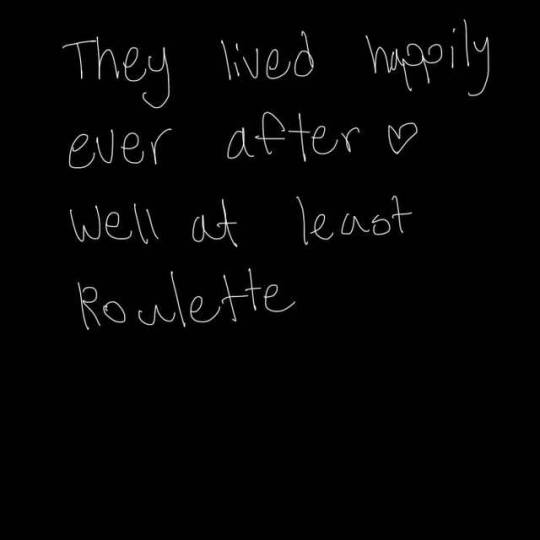 They lived happily
ever after ♡
Well at least
Roulette